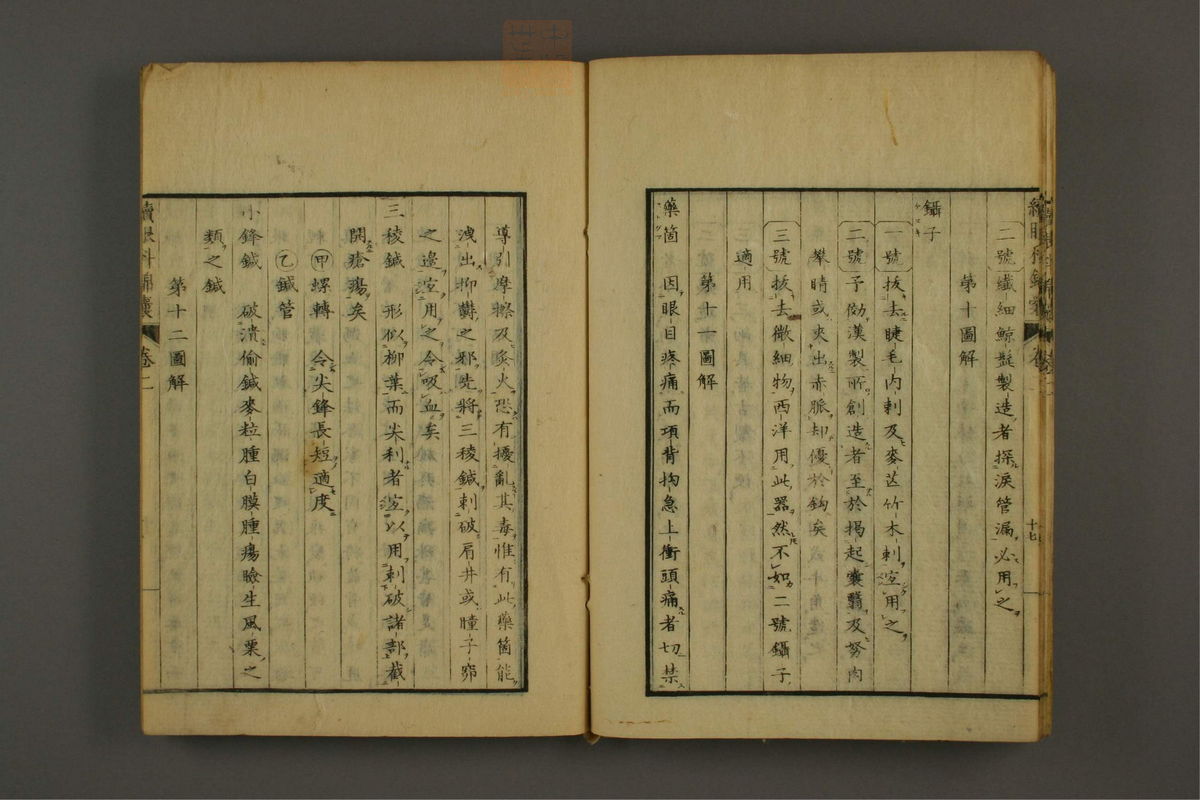 二號 纎細鯨鬚製造者探淚管漏必用之
第十圖解
鑷子
一號 拔去睫毛內刺及麥芒竹木刺宜用之
二號 予傚漢製所創造者至於揭起囊翳及努肉
攀睛或夾出赤脈却優於鈎矣
三號 拔去微細物西洋用此器然不如二號鑷子
適用
第十一圖解
藥筒 因眼目疼痛而項背拘急上衝頭痛者切禁
導引摩擦及炙火恐有擾亂其毒惟有此藥筒能
洩出抑鬱之邪先將三稜鍼刺破肩井或瞳子窌
之邊宜用之令吸血矣
三稜鍼 形似柳葉而尖利者宜以用刺破諸部截
開瘡瘍矣
甲 螺轉 令尖鋒長短適度
乙 鍼管
小鋒鍼 破潰偷鍼麥粒腫白膜腫瘍瞼生風粟之
類之鍼
第十二圖解
續眼科錦囊 卷二
十七